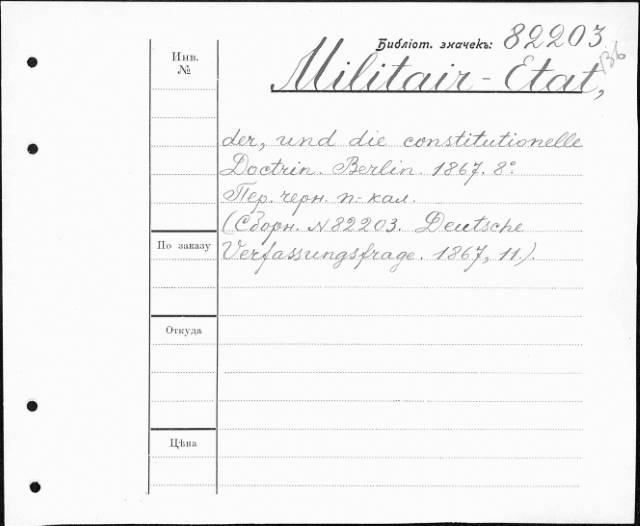 Библіот. значекъ: 82203
Инв. №
Militair-Etat,
der, und die constitutionelle
Doctrin. Berlin. 1867. 8°.
Пер. черн. п-кал.
(Сборн. №82203. Deutsche
Verfassungsfrage. 1867, 11.).
По заказу
Откуда
Цѣна